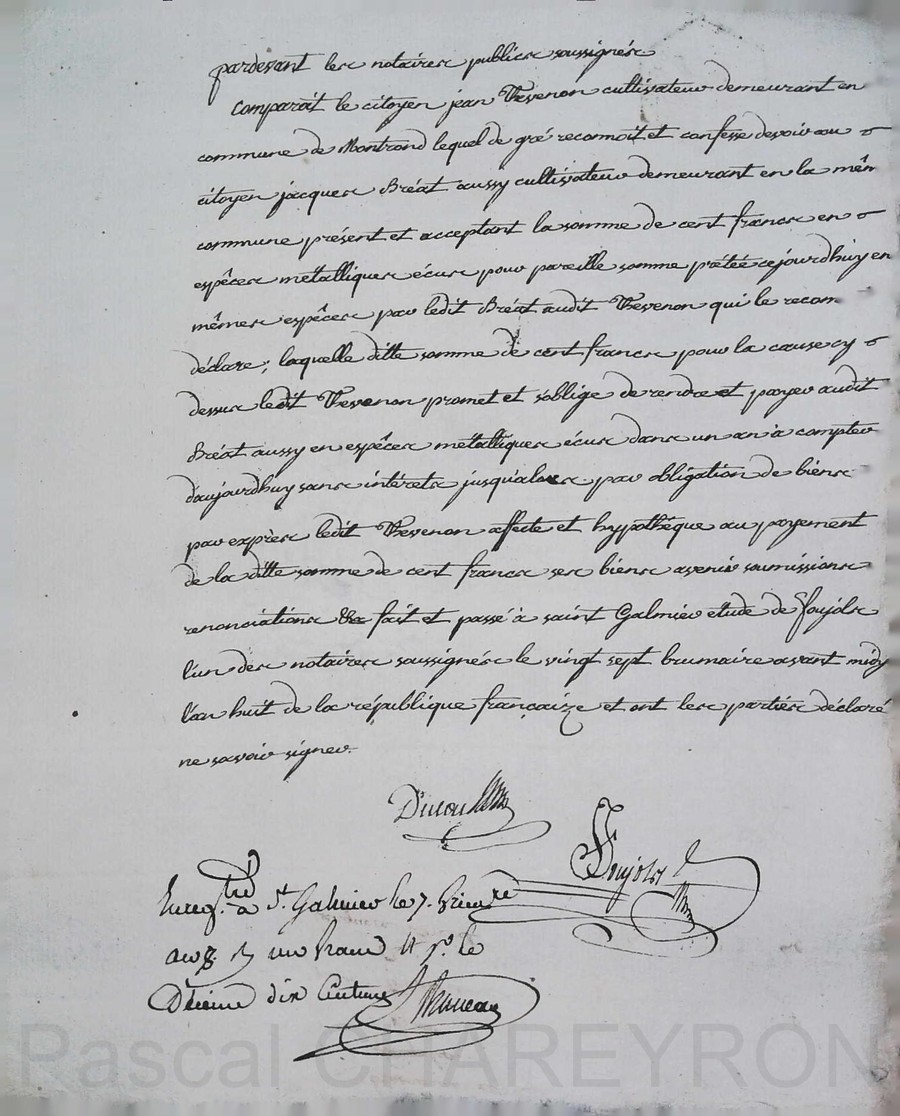 pardevant les notaires publics soussignés
comparait le citoyen jean Thevenon cultivateur demeurant en
commune de Montrond lequel de gré reconnoit et confesse devoir au
citoyen jacques Bréat aussy cultivateur demeurant en la mêm
commune présent et acceptant la somme de cent francs en
espêces métalliques écus pour pareille somme prêtée cejourdhuy en
mêmes espêces par ledit Bréat audit Thevenon qui le recon
déclare, laquelle ditte somme de cent francs pour la cause cy
dessus ledit Thevenon promet et s'oblige de rendre et payer audit
Bréat aussy en espêces métalliques écus dans un an à compter
d'aujourdhuy sans intérets jusqu'alors par obligation de biens
par exprès ledit Thevenon affecte et hypothèque au payement
de la ditte somme de cent francs ses biens avenir soumissions
renonciations &a fait et passé à saint Galmier etude de Foujols
l'un des notaires soussignés le vingt sept brumaire avant midy
l'an huit de la république françaize et ont les parties déclaré
ne savoir signer.
Foujols
Enregtré à St. Galmier le 7. frimre
an 8. R un franc
Décime dix Centimes
Pascal CHAREYRON